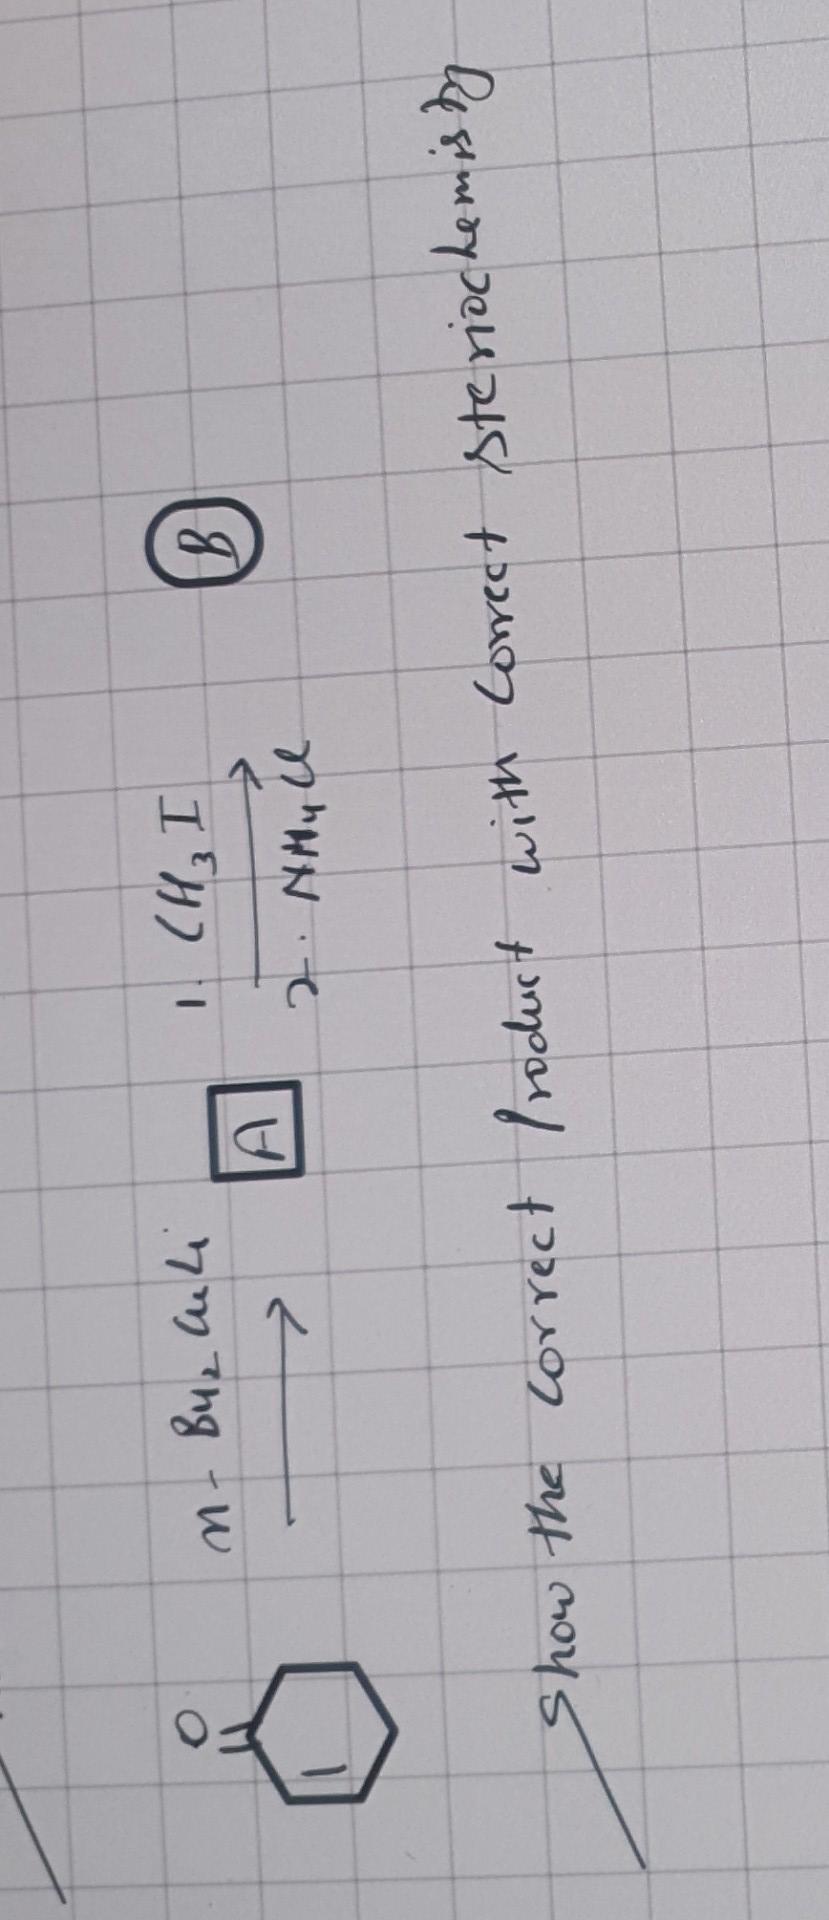 O
n-Bu2CuLi
A
1. CH3I
2. NH4Cl
B
Show the correct product with correct steriochemistry